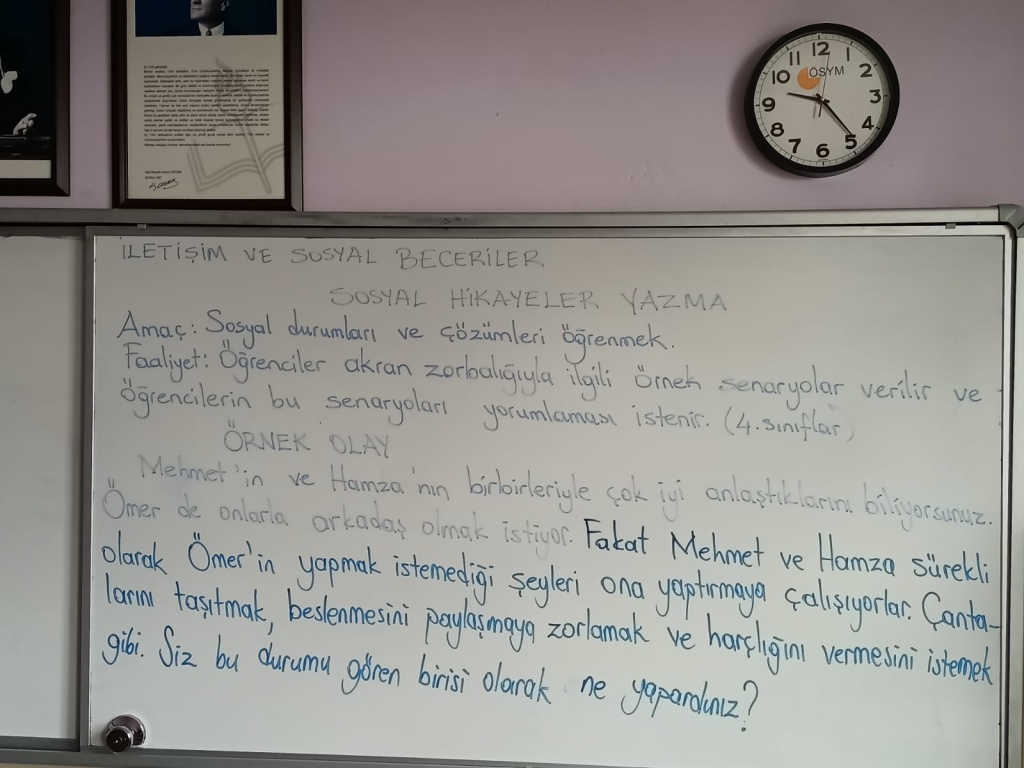 12
1
2
3
4
5
6
7
8
9
10
11
ÖSYM
İLETİŞİM VE SOSYAL BECERİLER
SOSYAL HİKAYELER YAZMA
Amaç: Sosyal durumları ve çözümleri öğrenmek.
Faaliyet: Öğrenciler akran zorbalığıyla ilgili örnek senaryolar verilir ve
öğrencilerin bu senaryoları yorumlaması istenir. (4.sınıflar)
ÖRNEK OLAY
Mehmet'in ve Hamza'nın birbirleriyle çok iyi anlaştıklarını biliyorsunuz.
Ömer de onlarla arkadaş olmak istiyor. Fakat Mehmet ve Hamza sürekli
olarak Ömer'in yapmak istemediği şeyleri ona yaptırmaya çalışıyorlar. Çanta-
larını taşıtmak, beslenmesini paylaşmaya zorlamak ve harçlığını vermesini istemek
gibi. Siz bu durumu gören birisi olarak ne yapardınız?